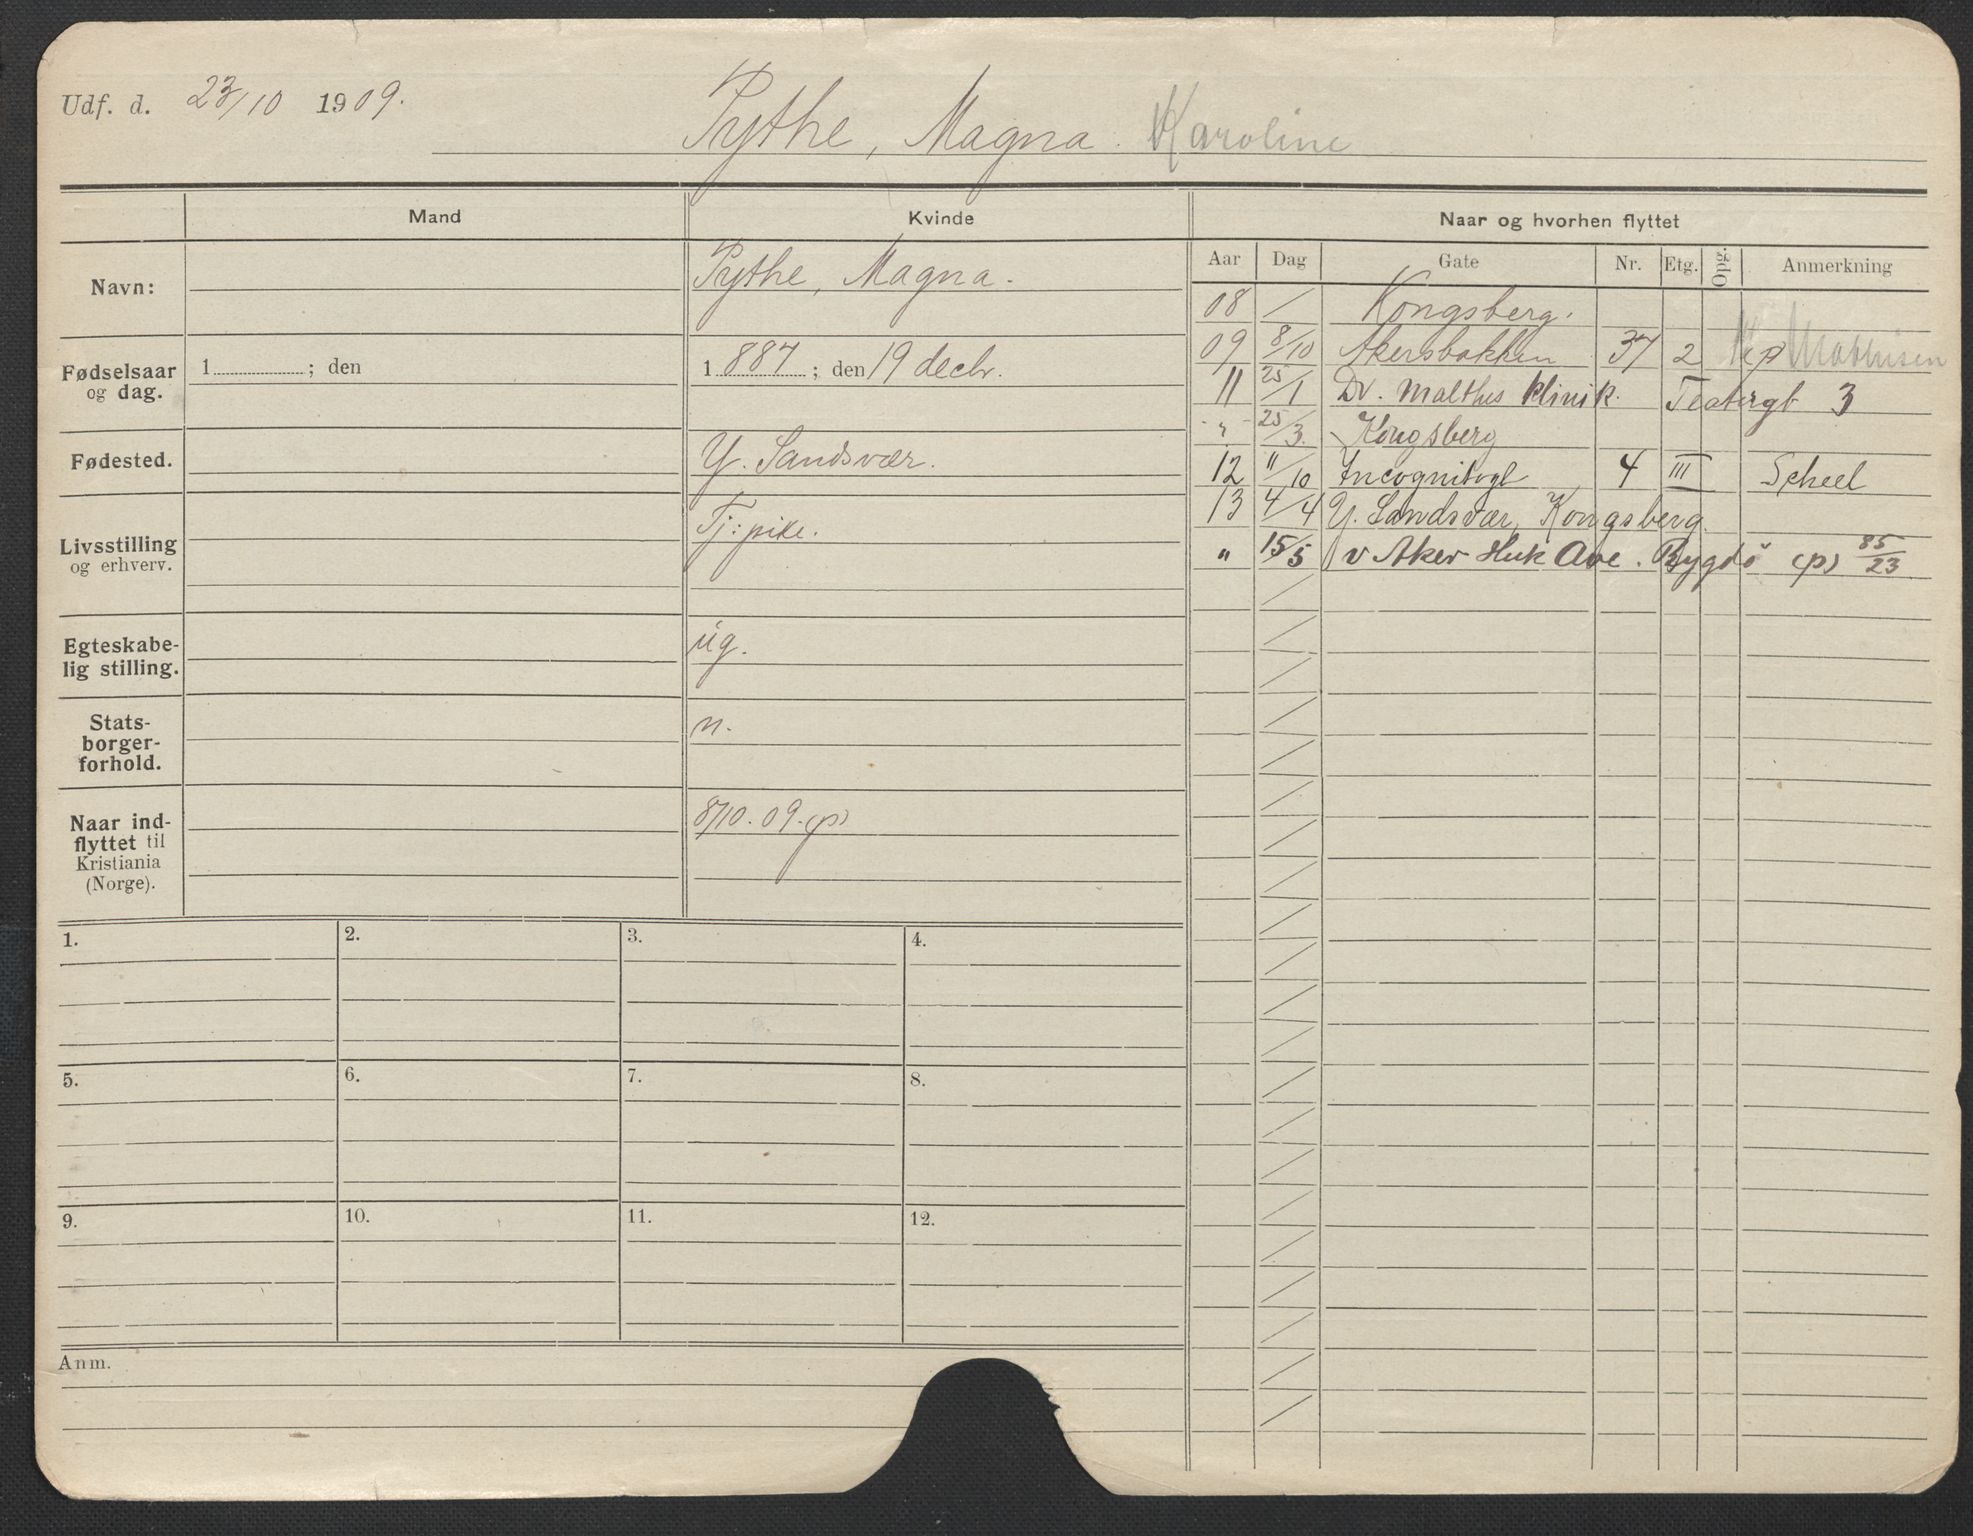 Udf. d. 23/10 1909.
Pythe, Magna Karoline
Mand
Kvinde
Naar og hvorhen flyttet
Aar Dag Gate Nr. Etg. Opg. Anmerkning
Navn:
Pythe, Magna.
Fødselsaar og dag.
1 ; den
1887 ; den 19 decbr.
Fødested.
Y. Sandsvær.
Livsstilling og erhverv.
Tj: pike.
Egteskabe-
lig stilling.
ug.
Stats-
borger-
forhold.
n.
Naar ind-
flyttet til
Kristiania
(Norge).
8/10. 09. (p)
08 / Kongsberg.
09 8/10 Akersbakken 37 2 Mathisen
11 25/1 Dr. Malthes klinik. Teatergt 3
" 25/3. Kongsberg
12 "/10 Incognitogt 4 III Scheel
13 4/4 Y. Sandsvær, Kongsberg.
" 15/5 v Aker Huk Ave. Bygdø (p) 85/23
1. 2. 3. 4.
5. 6. 7. 8.
9. 10. 11. 12.
Anm.